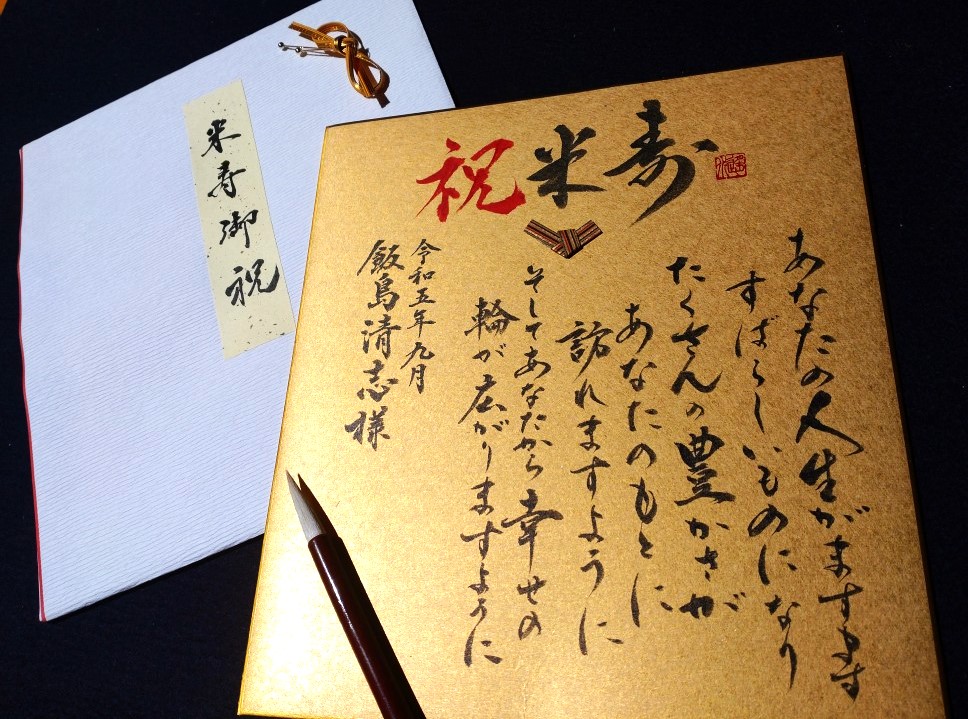 祝米寿
あなたの人生がますます
すばらしいものになり
たくさんの豊かさが
あなたのもとに
訪れますように
そしてあなたから幸せの
輪が広がりますように
令和五年九月
飯島清志様
米寿御祝